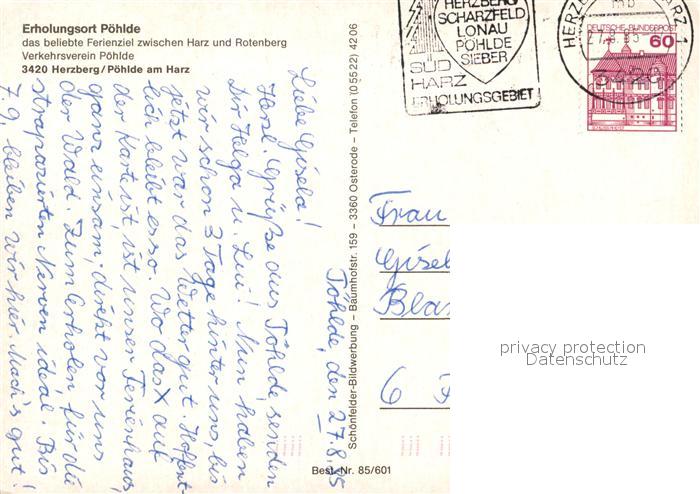 Erholungsort Pöhlde
das beliebte Ferienziel zwischen Harz und Rotenberg
Verkehrsverein Pöhlde
3420 Herzberg/Pöhlde am Harz
HERZBERG
SCHARZFELD
LONAU
PÖHLDE
SIEBER
SÜD
HARZ
ERHOLUNGSGEBIET
HARZ 1
27.8.85
3420
DEUTSCHE BUNDESPOST
60
Pöhlde, den 27.8.85
Liebe Gisela!
Herzl. Grüße aus Pöhlde senden
Dir Helga u. Lui! Nun haben
wir schon 3 Tage hinter uns, bis
jetzt war das Wetter gut. Hoffent-
lich bleibt es so. Wo das X auf
der Karte ist, ist unser Ferienhaus,
ganz einsam, direkt vor uns
der Wald. Zum Erholen für die
strapazierten Nerven ideal. Bis
7.9. bleiben wir hier. Mach's gut!
Schönfelder-Bildwerbung – Baumhofstr. 159 – 3360 Osterode – Telefon (05522) 4206
Frau
6
Best.-Nr. 85/601
privacy protection
Datenschutz